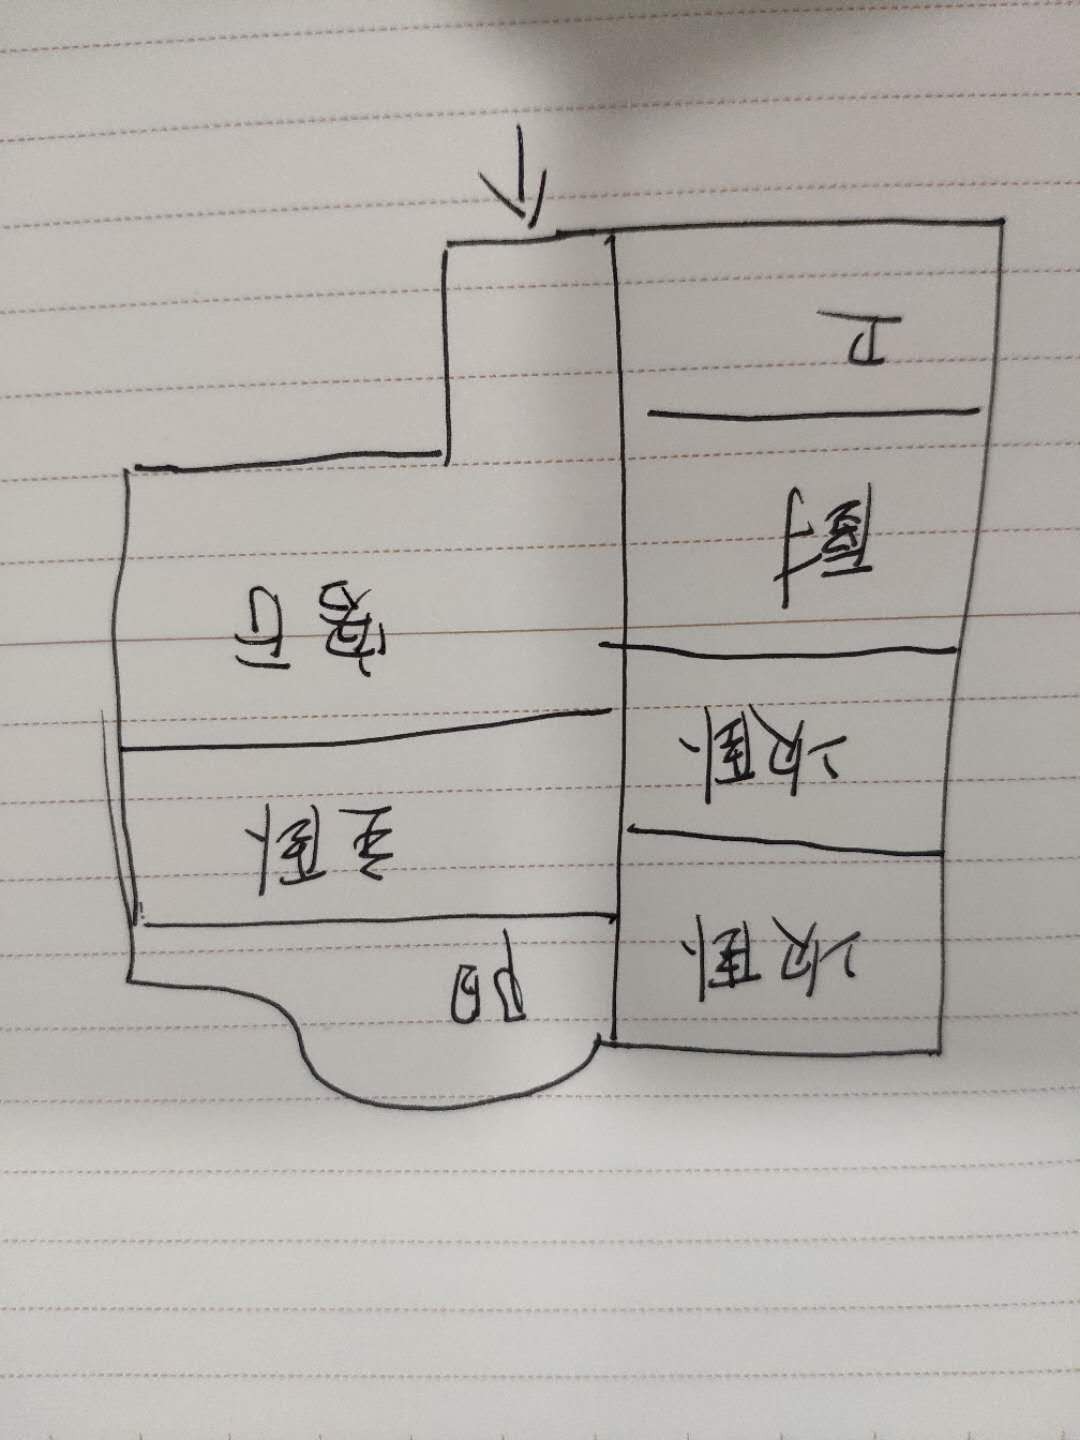 阳
次卧
主卧
次卧
客厅
厨
卫